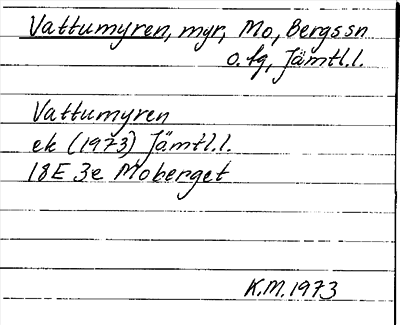 Vattumyren, myr, Mo, Bergs sn
o. fg, Jämtl. l.
Vattumyren
ek (1973) Jämtl. l.
18E 3e Moberget
K.M. 1973